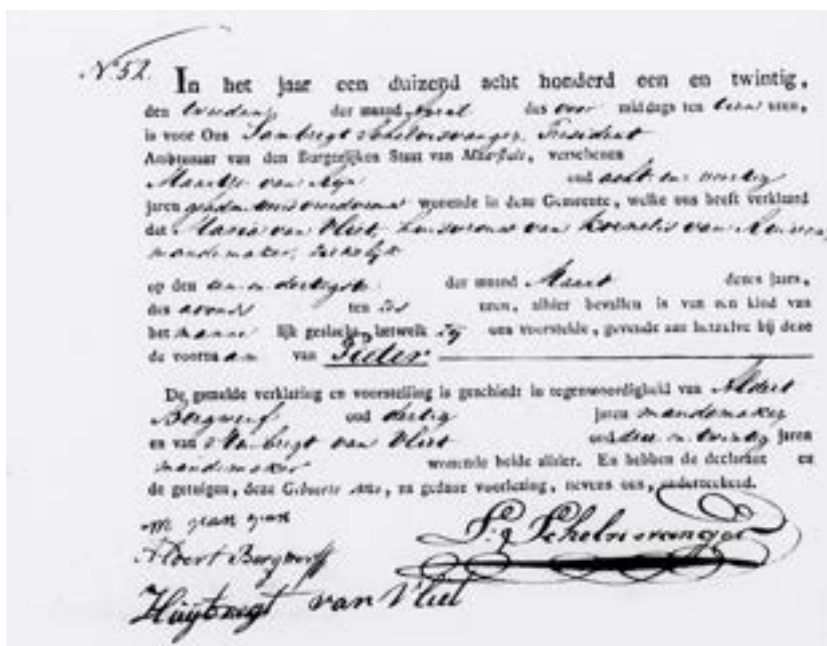 N 52.
In het jaar een duizend acht honderd een en twintig,
den tweeden der maand April des voor middags ten tien uren,
is voor Ons Schelvisvanger, President
Ambtenaar van den Burgerlijken Staat van Maassluis, verschenen
Maartje van oud acht en veertig
jaren wonende in deze Gemeente, welke ons heeft verklaard
dat Maria van Vliet, huisvrouw van Kornelis van
mandemaker,
op den een en dertigste der maand Maart dezes jaars,
des avonds ten zes uren, alhier bevallen is van een kind van
het manne lijk geslacht, hetwelk zij ons voorstelde, gevende aan hetzelve bij deze
de voornaam van Pieter
De gemelde verklaring en voorstelling is geschiedt in tegenwoordigheid van Aldert
Borgwerf oud dertig jaren mandemaker
en van van Vliet oud en twintig jaren
mandemaker wonende beide alhier. En hebben de declarant en
de getuigen, deze Geboorte Acte, na gedane voorlezing, nevens ons, onderteekend.
Aldert Borgwerff
Schelvisvanger
Huijbregt van Vliet